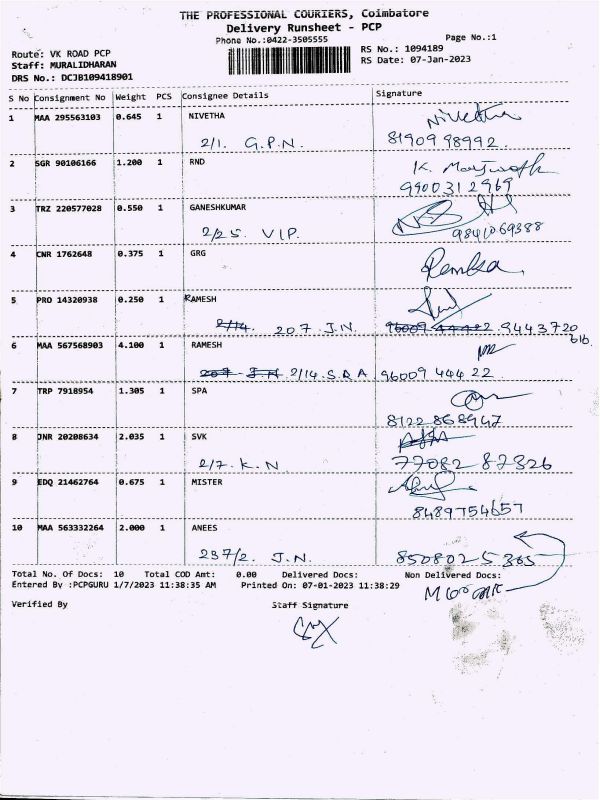 THE PROFESSIONAL COURIERS, Coimbatore
Delivery Runsheet - PCP
Phone No.:0422-3505555
Page No.:1
Route: VK ROAD PCP
RS No.: 1094189
Staff: MURALIDHARAN
RS Date: 07-Jan-2023
DRS No.: DCJB109418901
S No Consignment No Weight PCS Consignee Details Signature
1 MAA 295563103 0.645 1 NIVETHA Nivetha
2/1. G.P.N. 81909 98992
2 SGR 90106166 1.200 1 RND K.
9900312969
3 TRZ 220577028 0.550 1 GANESHKUMAR
2/25. VIP. 9841069388
4 CNR 1762648 0.375 1 GRG
5 PRO 14320938 0.250 1 RAMESH
2/14. 207 J.N. 96009 44422 9443720
616.
6 MAA 567568903 4.100 1 RAMESH
207 J.N 2/14. S.R.A 96009 444 22
7 TRP 7918954 1.305 1 SPA
8122 868947
8 JNR 20208634 2.035 1 SVK
2/7. K.N 77082 87326
9 EDQ 21462764 0.675 1 MISTER
8489754657
10 MAA 563332264 2.000 1 ANEES
237/2. J.N. 8508025365
Total No. Of Docs: 10 Total COD Amt: 0.00 Delivered Docs: Non Delivered Docs:
Entered By :PCPGURU 1/7/2023 11:38:35 AM Printed On: 07-01-2023 11:38:29
Verified By Staff Signature